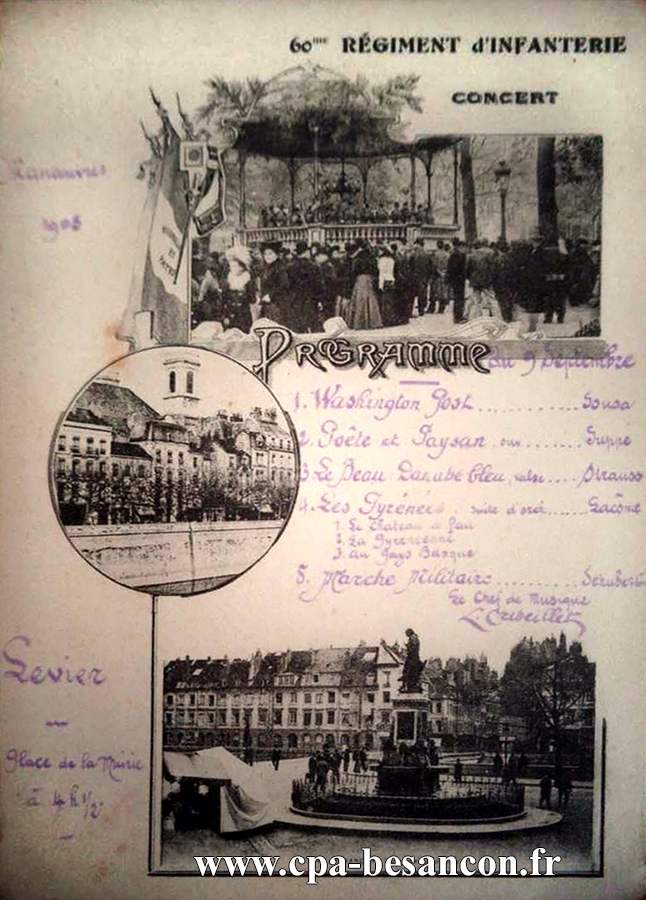 60me RÉGIMENT d'INFANTERIE
CONCERT
Manœuvres
PROGRAMME du 9 Septembre
1. Washington Post ........ Sousa
2. Poête et Paysan, ouv ........ Suppé
3. Le Beau Danube bleu, valse .... Strauss
4. Les Pyrénées suite d'orch ........ Lacôme
1. Le Chateau de Pau
2. La
3. Au Pays Basque
5. Marche Militaire .......... Schubert
Le Chef de Musique
Levier
Place de la Mairie
à 4 h 1/2
www.cpa-besancon.fr